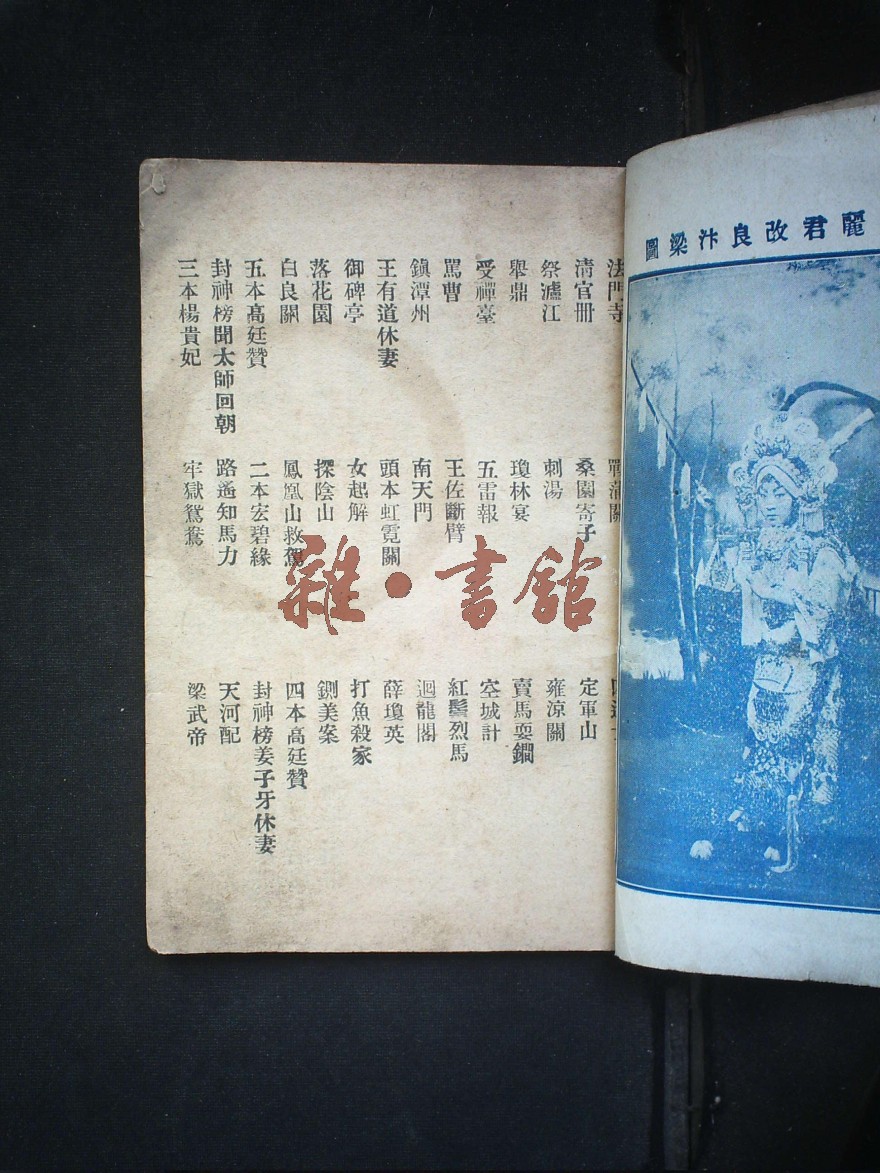 麗君改良汴梁圖
法門寺
清官冊
祭瀘江
舉鼎
受禪臺
罵曹
鎮潭州
王有道休妻
御碑亭
落花園
白良關
五本高廷贊
封神榜聞太師回朝
三本楊貴妃
戰蒲關
桑園寄子
刺湯
瓊林宴
五雷報
王佐斷臂
南天門
頭本虹霓關
女起解
探陰山
鳳凰山救駕
二本宏碧緣
路遙知馬力
牢獄鴛鴦
定軍山
雍涼關
賣馬耍鐧
空城計
紅鬃烈馬
迴龍閣
薛瓊英
打魚殺家
鍘美案
四本高廷贊
封神榜姜子牙休妻
天河配
梁武帝
雜·書館